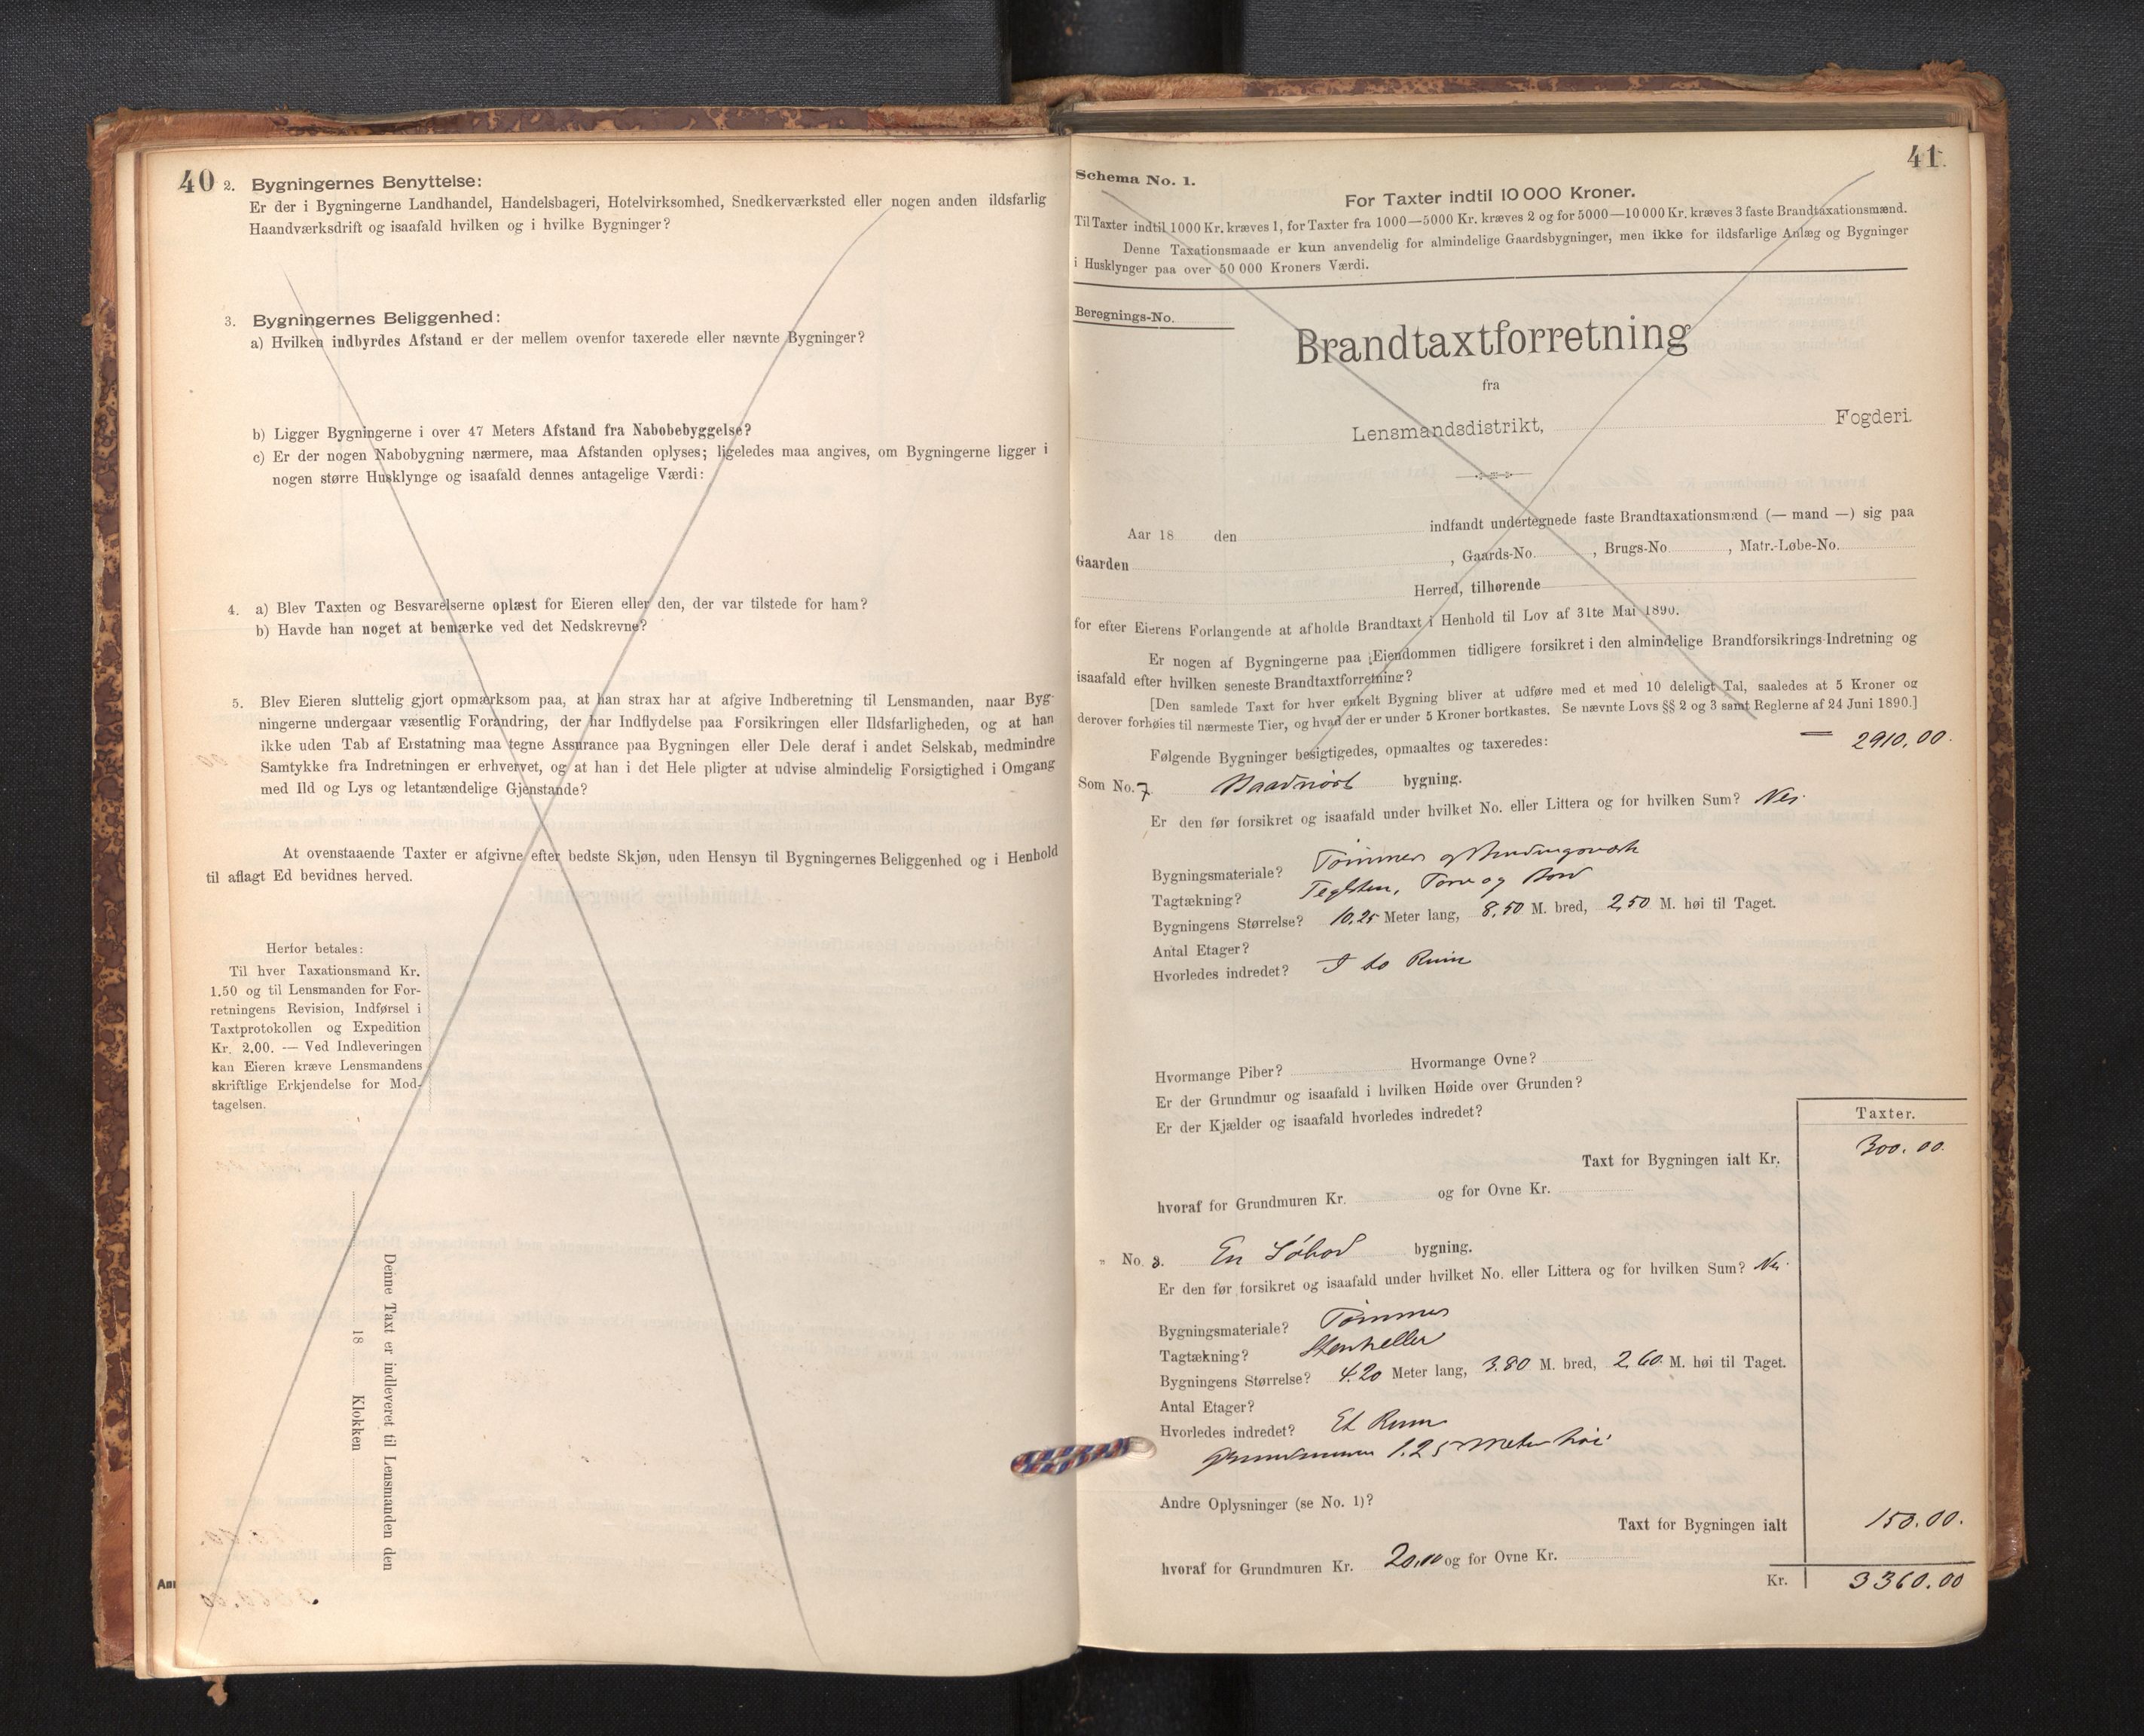 40
2. Bygningernes Benyttelse:
Er der i Bygningerne Landhandel, Handelsbageri, Hotelvirksomhed, Snedkerværksted eller nogen anden ildsfarlig
Haandværksdrift og isaafald hvilken og i hvilke Bygninger?
3. Bygningernes Beliggenhed:
a) Hvilken indbyrdes Afstand er der mellem ovenfor taxerede eller nævnte Bygninger?
b) Ligger Bygningerne i over 47 Meters Afstand fra Nabobebyggelse?
c) Er der nogen Nabobygning nærmere, maa Afstanden oplyses; ligeledes maa angives, om Bygningerne ligger i
nogen større Husklynge og isaafald dennes antagelige Værdi:
4. a) Blev Taxten og Besvarelserne oplæst for Eieren eller den, der var tilstede for ham?
b) Havde han noget at bemærke ved det Nedskrevne?
5. Blev Eieren sluttelig gjort opmærksom paa, at han strax har at afgive Indberetning til Lensmanden, naar Byg-
ningerne undergaar væsentlig Forandring, der har Indflydelse paa Forsikringen eller Ildsfarligheden, og at han
ikke uden Tab af Erstatning maa tegne Assurance paa Bygningen eller Dele deraf i andet Selskab, medmindre
Samtykke fra Indretningen er erhvervet, og at han i det Hele pligter at udvise almindelig Forsigtighed i Omgang
med Ild og Lys og letantændelige Gjenstande?
At ovenstaaende Taxter er afgivne efter bedste Skjøn, uden Hensyn til Bygningernes Beliggenhed og i Henhold
til aflagt Ed bevidnes herved.
Herfor betales:
Til hver Taxationsmand Kr.
1.50 og til Lensmanden for For-
retningens Revision, Indførsel i
Taxtprotokollen og Expedition
Kr. 2.00. — Ved Indleveringen
kan Eieren kræve Lensmandens
skriftlige Erkjendelse for Mod-
tagelsen.
Denne Taxt er indleveret til Lensmanden den
18 Klokken
41
Schema No. 1.
For Taxter indtil 10 000 Kroner.
Til Taxter indtil 1000 Kr. kræves 1, for Taxter fra 1000—5000 Kr. kræves 2 og for 5000—10 000 Kr. kræves 3 faste Brandtaxationsmænd.
Denne Taxationsmaade er kun anvendelig for almindelige Gaardsbygninger, men ikke for ildsfarlige Anlæg og Bygninger
i Husklynger paa over 50 000 Kroners Værdi.
Beregnings-No.
Brandtaxtforretning
fra
Lensmandsdistrikt, Fogderi.
Aar 18 den indfandt undertegnede faste Brandtaxationsmænd (— mand —) sig paa
Gaarden , Gaards-No. , Brugs-No , Matr.-Løbe-No.
Herred, tilhørende
for efter Eierens Forlangende at afholde Brandtaxt i Henhold til Lov af 31te Mai 1890.
Er nogen af Bygningerne paa Eiendommen tidligere forsikret i den almindelige Brandforsikrings-Indretning og
isaafald efter hvilken seneste Brandtaxtforretning?
[Den samlede Taxt for hver enkelt Bygning bliver at udføre med et med 10 deleligt Tal, saaledes at 5 Kroner og
derover forhøies til nærmeste Tier, og hvad der er under 5 Kroner bortkastes. Se nævnte Lovs §§ 2 og 3 samt Reglerne af 24 Juni 1890.]
Følgende Bygninger besigtigedes, opmaaltes og taxeredes: 2910,00.
Som No. 7 Baadnøst bygning.
Er den før forsikret og isaafald under hvilket No. eller Littera og for hvilken Sum? Nei
Bygningsmateriale? Tømmer og Bindingsværk
Tagtækning? Teglsten, Torv og Bord
Bygningens Størrelse? 10.25 Meter lang, 8,50 M. bred, 2,50 M. høi til Taget.
Antal Etager?
Hvorledes indredet? I to Rum
Hvormange Piber? Hvormange Ovne?
Er der Grundmur og isaafald i hvilken Høide over Grunden?
Er der Kjælder og isaafald hvorledes indredet?
Taxter.
Taxt for Bygningen ialt Kr. 300.00
hvoraf for Grundmuren Kr. og for Ovne Kr.
" No. 8. En Søbod bygning.
Er den før forsikret og isaafald under hvilket No. eller Littera og for hvilken Sum? Nei
Bygningsmateriale? Tømmer
Tagtækning? Stenheller
Bygningens Størrelse? 4.20 Meter lang, 3.80 M. bred, 2.60 M. høi til Taget.
Antal Etager?
Hvorledes indredet? Et Rum
Grundmuren 1.25 Meter høi
Andre Oplysninger (se No. 1)?
Taxt for Bygningen ialt 150.00.
hvoraf for Grundmuren Kr. 20,00 og for Ovne Kr.
Kr. 3360.00